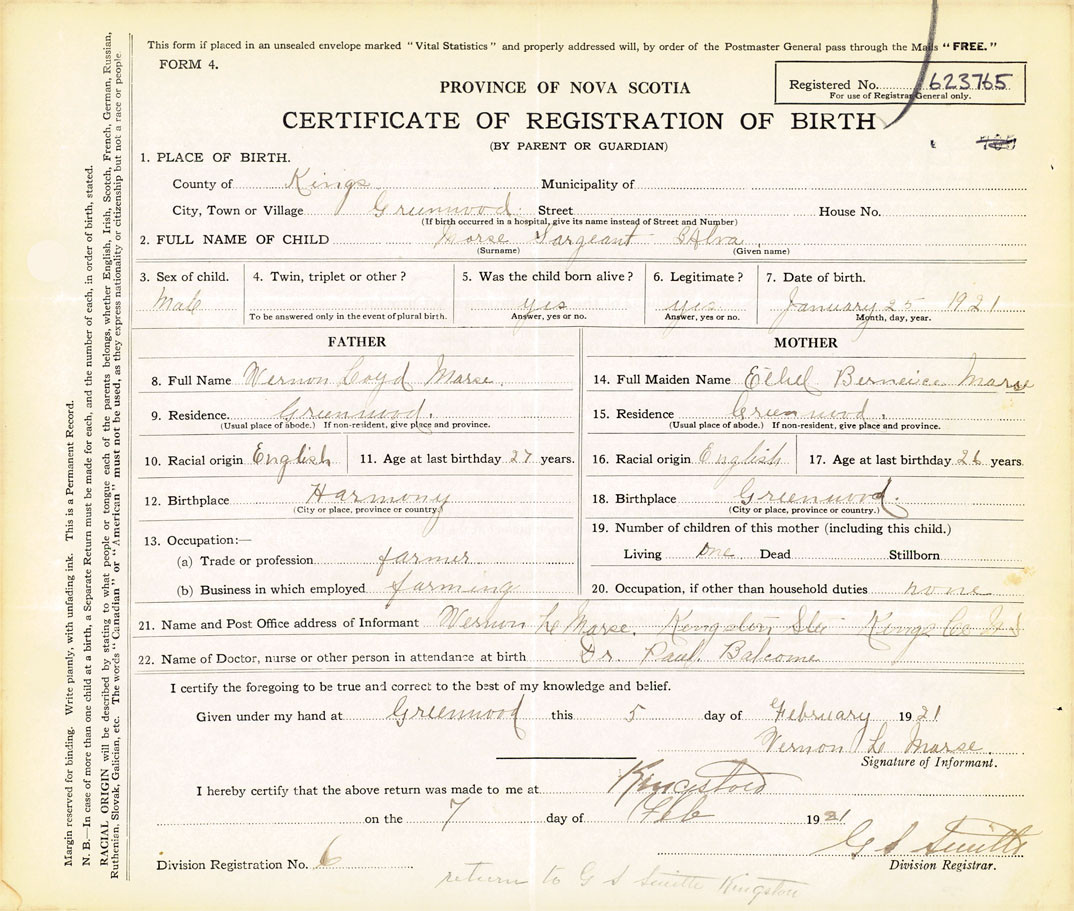 This form if placed in an unsealed envelope marked "Vital Statistics" and properly addressed will, by order of the Postmaster General pass through the Mails "FREE."
FORM 4.
Registered No. 623765
For use of Registrar General only.
PROVINCE OF NOVA SCOTIA
CERTIFICATE OF REGISTRATION OF BIRTH
(BY PARENT OR GUARDIAN)
1. PLACE OF BIRTH.
County of Kings Municipality of
City, Town or Village Greenwood Street House No.
(If birth occurred in a hospital, give its name instead of Street and Number)
2. FULL NAME OF CHILD Morse Sargeant
(Surname) (Given name)
3. Sex of child. 4. Twin, triplet or other? 5. Was the child born alive? 6. Legitimate? 7. Date of birth.
Male yes yes January 25 1921
To be answered only in the event of plural birth. Answer, yes or no. Answer, yes or no. Month, day, year.
FATHER MOTHER
8. Full Name Vernon Loyd Marse. 14. Full Maiden Name Ethel Berneice Marse
9. Residence. Greenwood. 15. Residence Greenwood.
(Usual place of abode.) If non-resident, give place and province. (Usual place of abode.) If non-resident, give place and province.
10. Racial origin English 11. Age at last birthday 27 years. 16. Racial origin English 17. Age at last birthday 26 years.
12. Birthplace Harmony 18. Birthplace Greenwood.
(City or place, province or country.) (City or place, province or country.)
13. Occupation:— 19. Number of children of this mother (including this child.)
(a) Trade or profession farmer Living One Dead Stillborn
(b) Business in which employed farming 20. Occupation, if other than household duties none
21. Name and Post Office address of Informant Vernon L Marse. Kingston, Sta Kings Co N S
22. Name of Doctor, nurse or other person in attendance at birth Dr. Paul. Balcome
I certify the foregoing to be true and correct to the best of my knowledge and belief.
Given under my hand at Greenwood this 5 day of February 1921
Vernon L Marse.
Signature of Informant.
I hereby certify that the above return was made to me at Kingston
on the 7 day of Feb 1921
G S Smith
Division Registration No. 6 Division Registrar.
return to G S Smith Kingston
Margin reserved for binding. Write plainly, with unfading ink. This is a Permanent Record.
N. B.—In case of more than one child at a birth, a Separate Return must be made for each, and the number of each, in order of birth, stated.
RACIAL ORIGIN will be described by stating to what people or tongue each of the parents belongs, whether English, Irish, Scotch, French, German, Russian,
Ruthenian, Slovak, Galician, etc. The words "Canadian" or "American" must not be used, as they express nationality or citizenship but not a race or people.